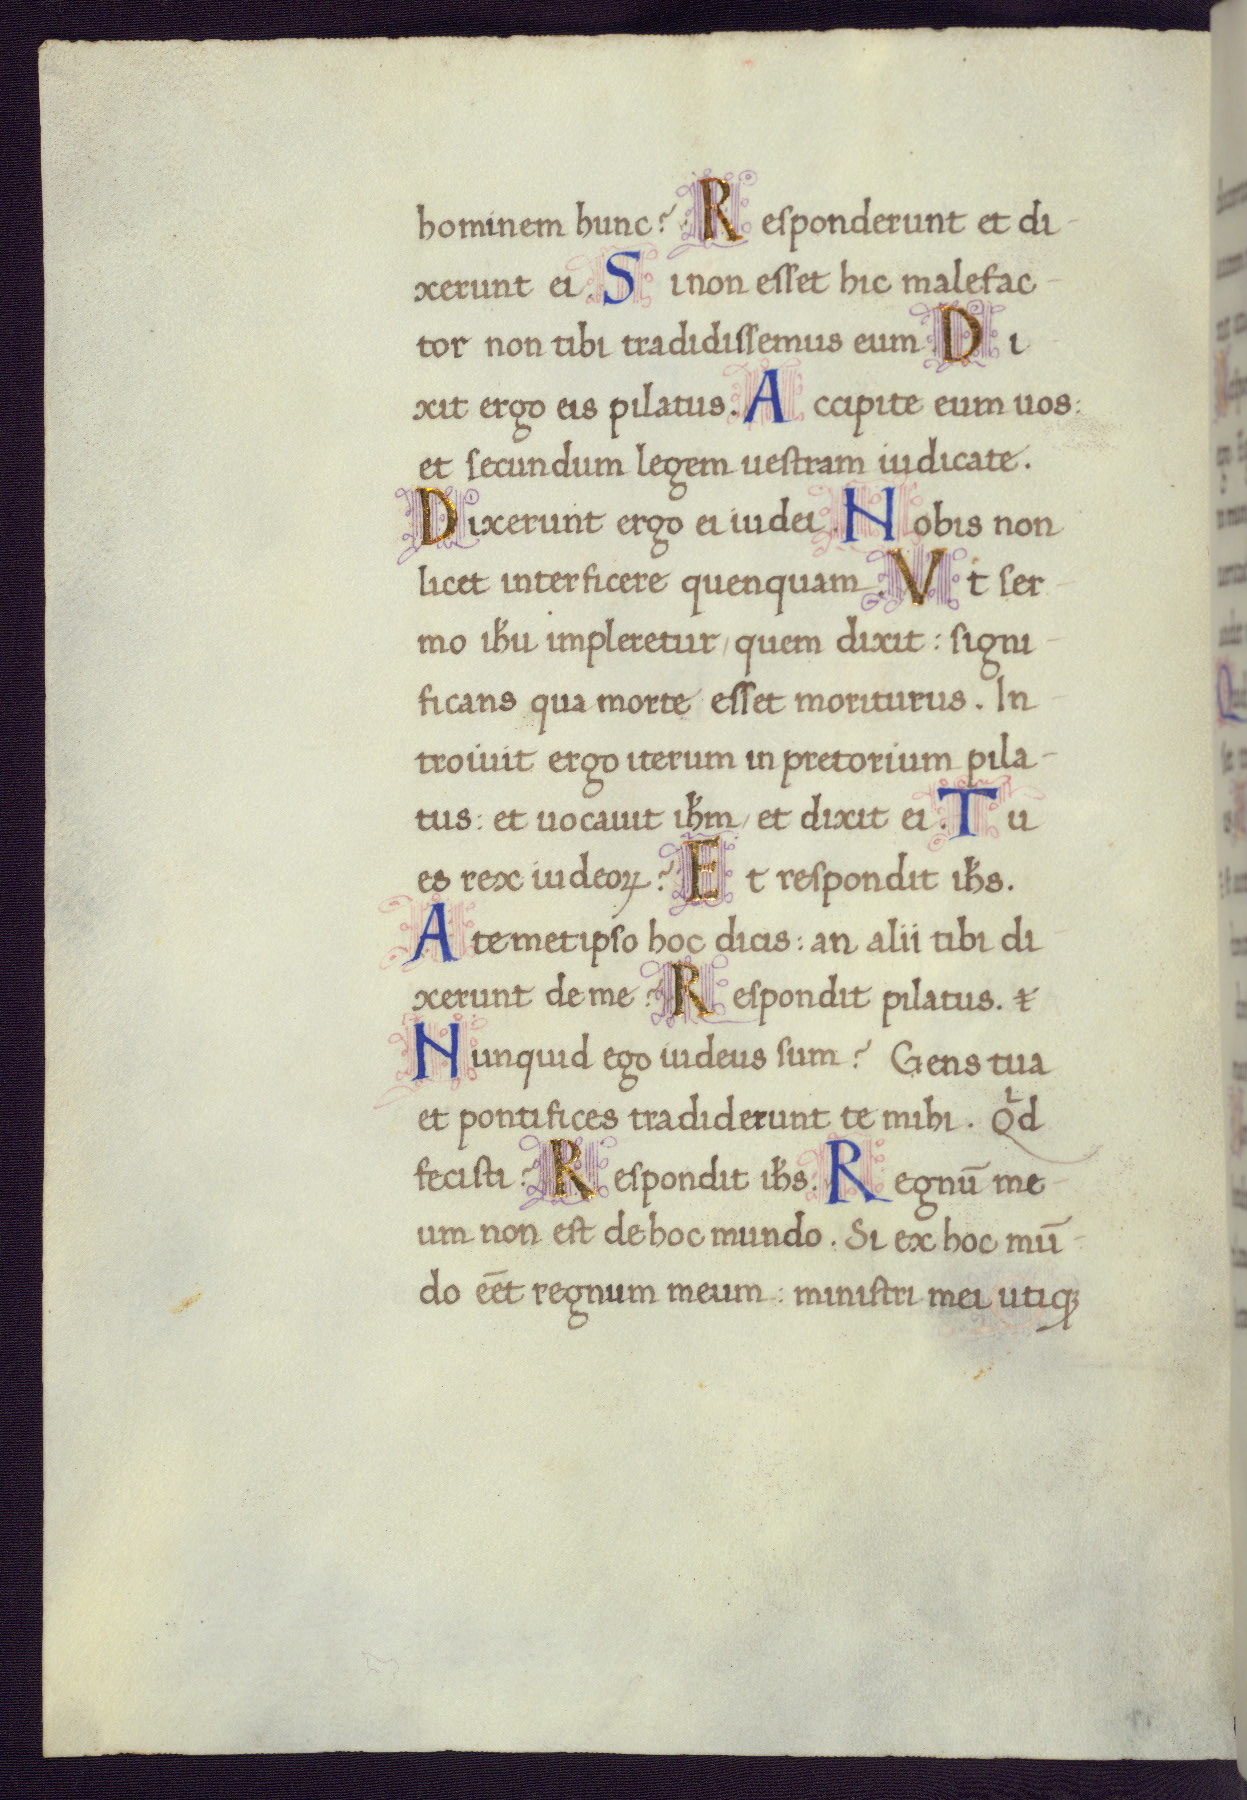 hominem hunc? Responderunt et di-
xerunt ei. Si non eſſet hic malefac-
tor non tibi tradidiſſemus eum. Di
xit ergo eis pilatus. Accipite eum uos:
et ſecundum legem ueſtram iudicate.
Dixerunt ergo ei iudei. Nobis non
licet interficere quenquam. Vt ser-
mo ih̄u impleretur, quem dixit: ſigni-
ficans qua morte eſſet moriturus. In-
troiuit ergo iterum in pretorium pila-
tus: et uocauit ih̄m, et dixit ei. Tu
es rex iudeoꝝ? Et reſpondit ih̄s.
A temetipſo hoc dicis: an alii tibi di-
xerunt de me? Reſpondit pilatus.
Nunquid ego iudeus ſum? Gens tua
et pontifices tradiderunt te mihi. Qͥd
feciſti? Reſpondit ih̄s. Regnū me-
um non eſt de hoc mundo. Si ex hoc mū-
do eēt regnum meum: miniſtri mei utiqꝫ